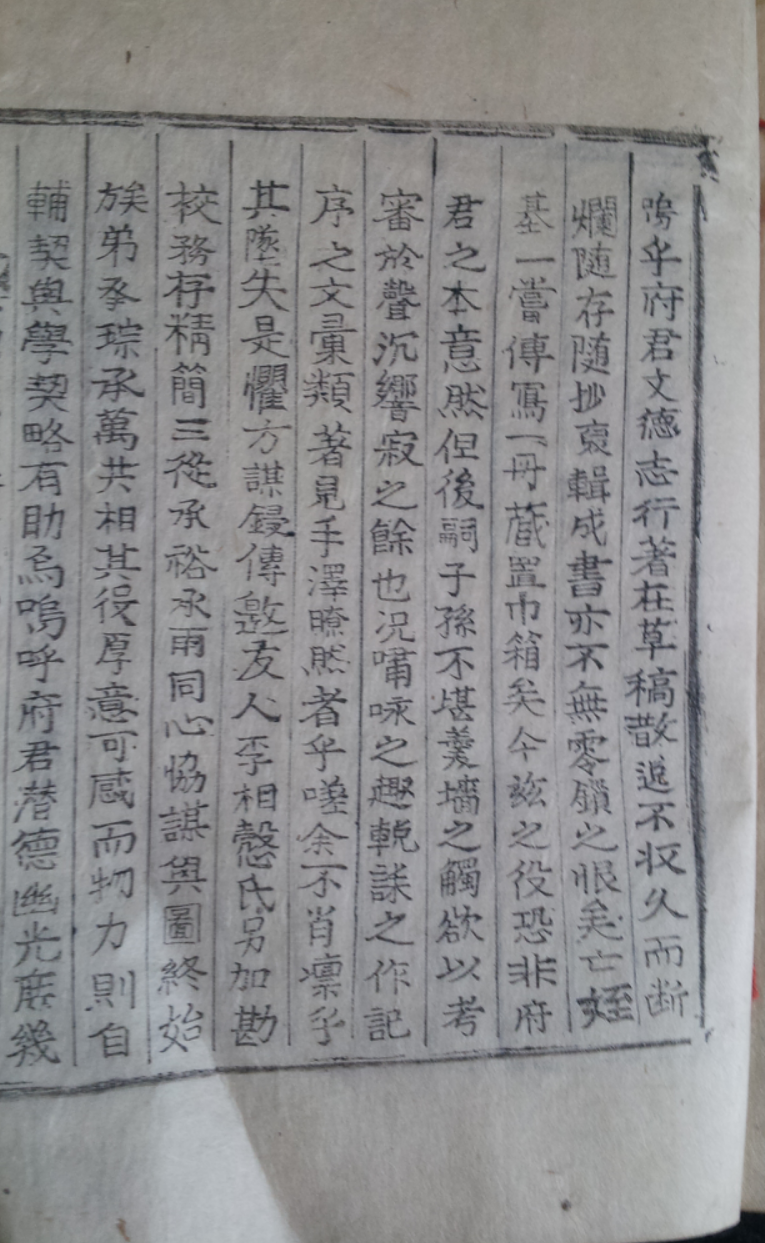 嗚乎府君文德志行著在草稿散逸不収久而断
爛随存随抄裒輯成書亦不無零𤨏之恨矣亡姪
基一嘗傳寫一冊蔵置巾箱矣今玆之役恐非府
君之本意然但後嗣子孫不堪羹墻之觸欲以考
審於聲沉響寂之餘也况嘯咏之趣輓誄之作記
序之文彙類著見手澤瞭然者乎嗟余不肖凛乎
其墜失是懼方謀鋟傳邀友人李相慤氏另加勘
校務存精簡三從承裕承雨同心恊謀與圖終始
族弟承琮承萬共相其役厚意可感而物力則自
輔契與學契略有助焉嗚呼府君潜德幽光庶幾